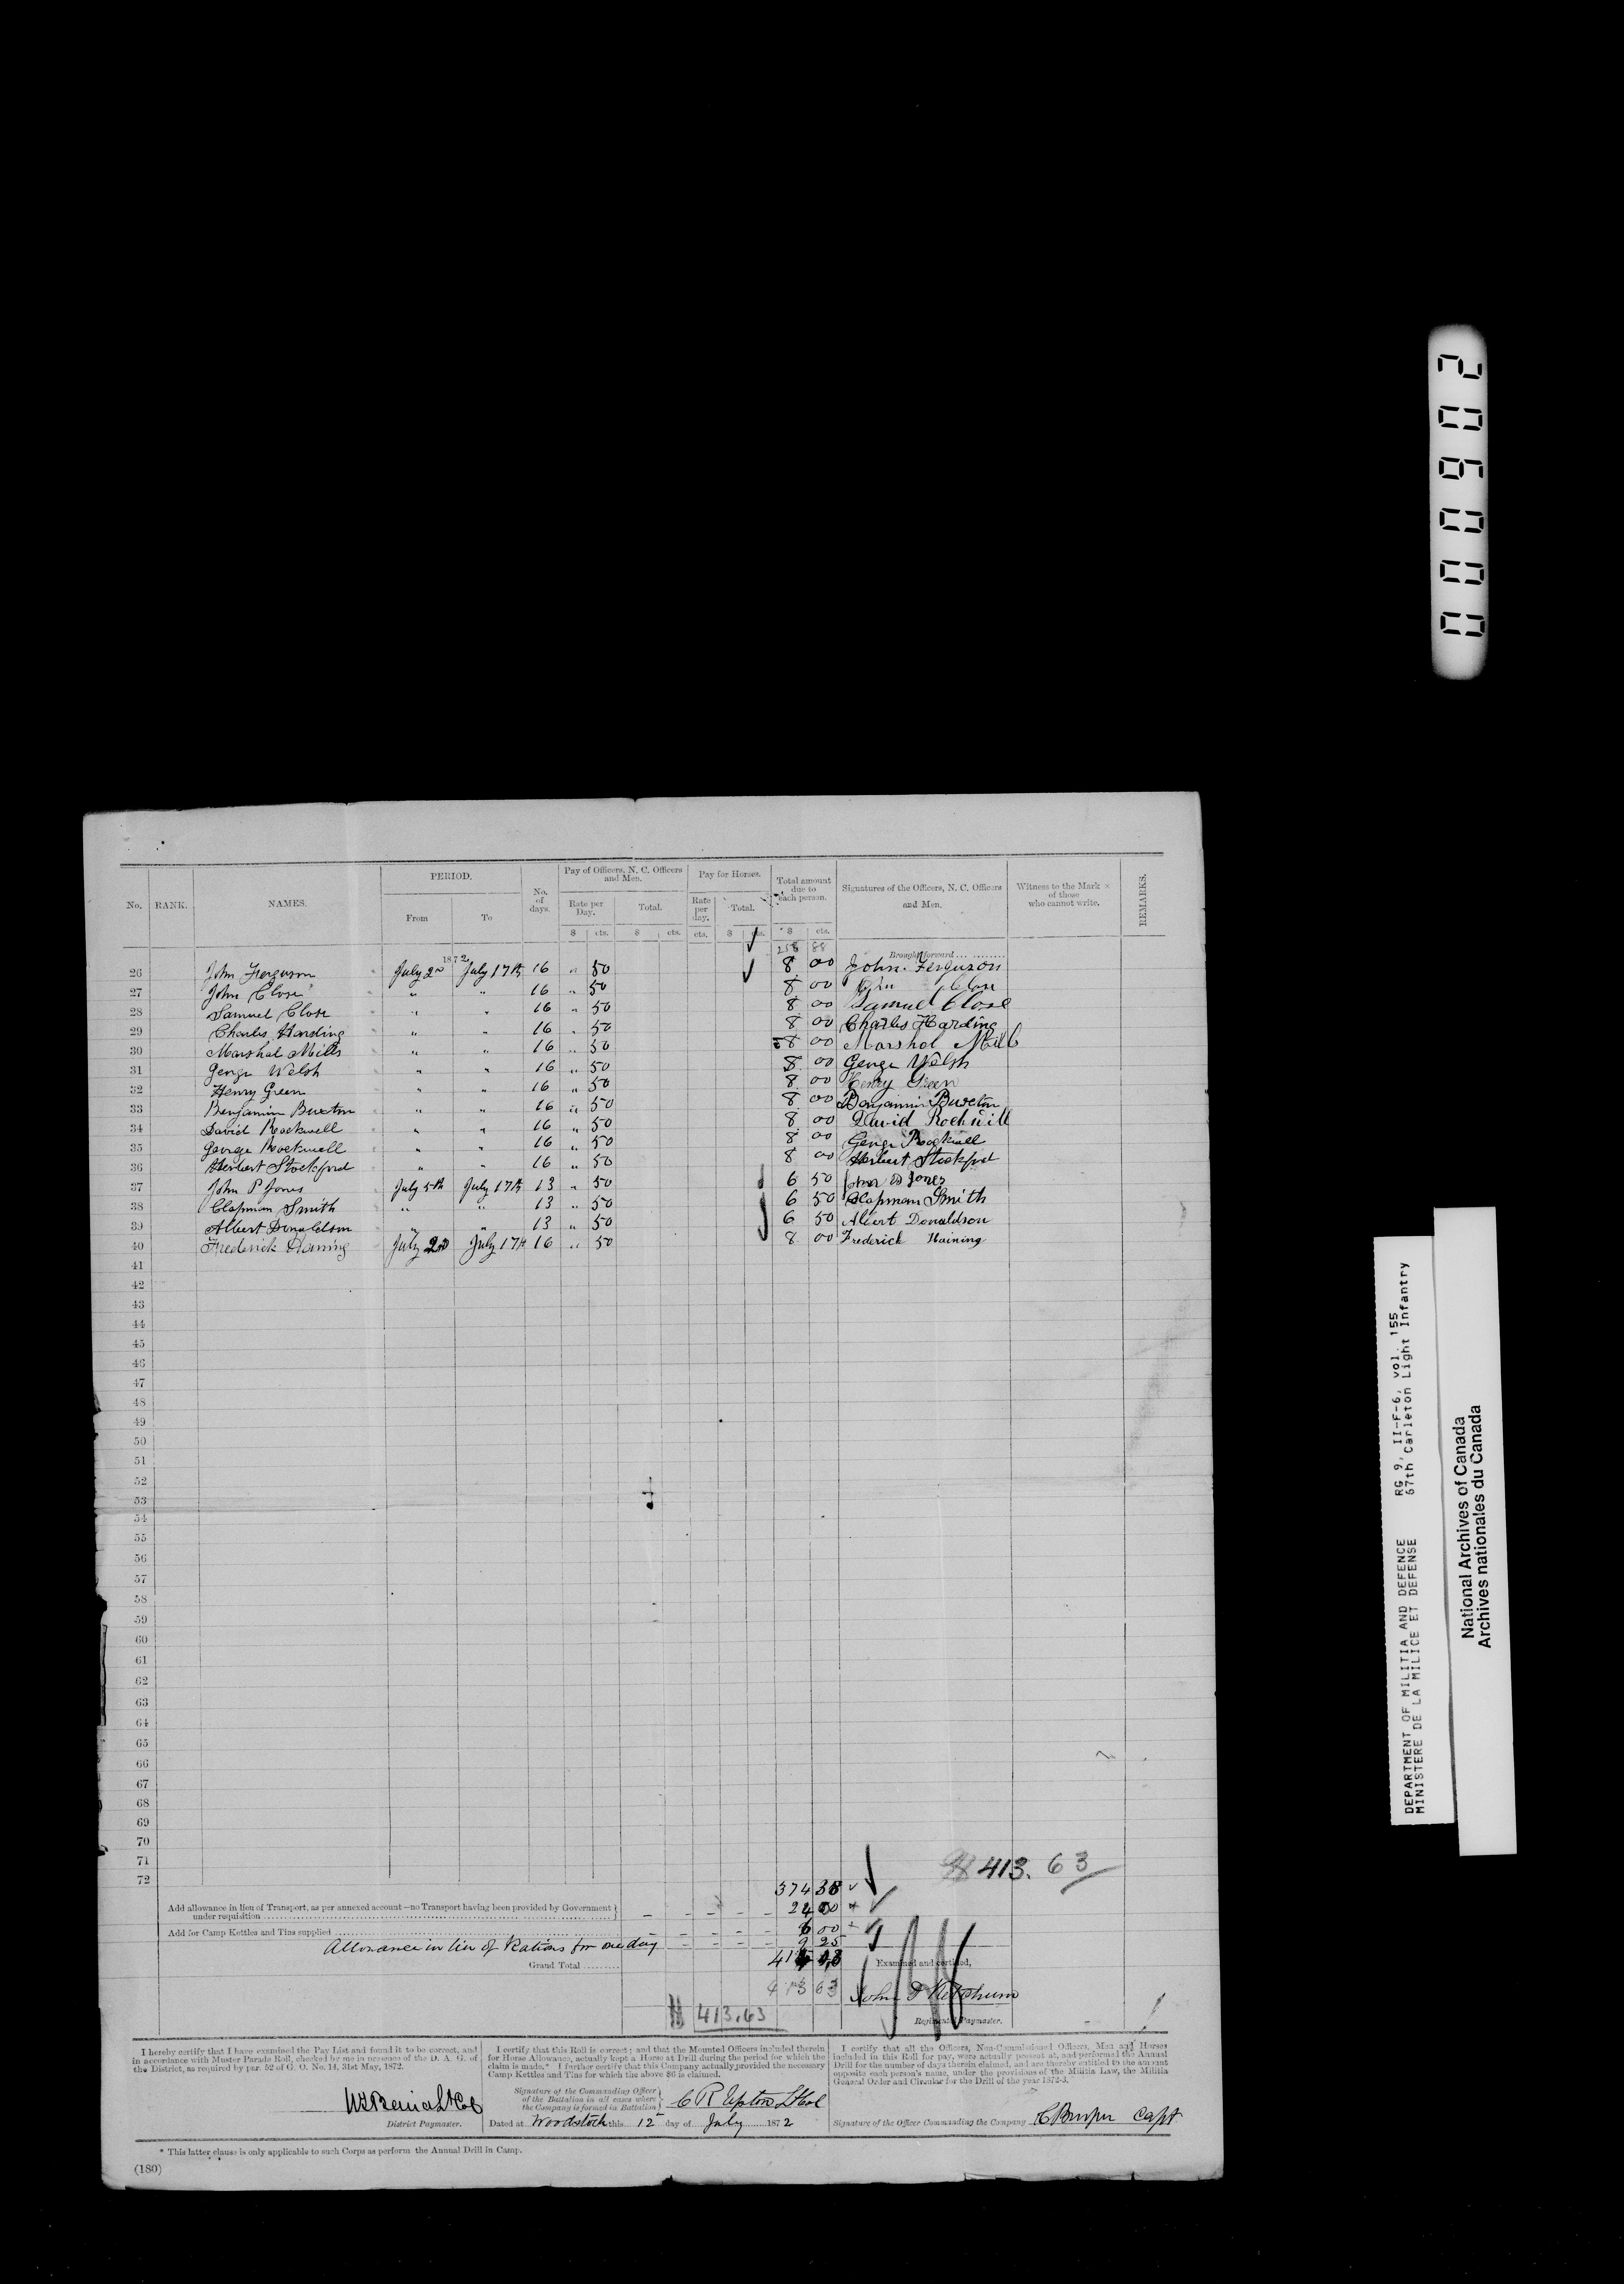 No. RANK. NAMES. PERIOD. From To No. of days. Pay of Officers, N. C. Officers and Men. Rate per Day. $ cts. Total. $ cts. Pay for Horses. Rate per day. cts. Total. $ cts. Total amount due to each person. $ cts. Signatures of the Officers, N. C. Officers and Men. Witness to the Mark × of those who cannot write. REMARKS.
258 88 Brought forward
1872
26 John Ferguson July 2nd July 17th 16 " 50 8 00 John Ferguson
27 John Close " " 16 " 50 8 00 John Close
28 Samuel Close " " 16 " 50 8 00 Samuel Close
29 Charles Harding " " 16 " 50 8 00 Charles Harding
30 Marshal Mills " " 16 " 50 8 00 Marshal Mill
31 George Welsh " " 16 " 50 8 00 George Welsh
32 Henry Green " " 16 " 50 8 00 Henry Green
33 Benjamin Buxton " " 16 " 50 8 00 Benjamin Buxton
34 David Rockwell " " 16 " 50 8 00 David Rockwill
35 George Rockwell " " 16 " 50 8 00 George Rockwell
36 Herbert Stockford " " 16 " 50 8 00 Herbert Stockford
37 John P Jones July 5th July 17th 13 " 50 6 50 Jones
38 Clapman Smith " " 13 " 50 6 50 Clapman Smith
39 Albert Donaldson " " 13 " 50 6 50 Albert Donaldson
40 Frederick Haining July 2nd July 17th 16 " 50 8 00 Frederick Haining
41
42
43
44
45
46
47
48
49
50
51
52
53
54
55
56
57
58
59
60
61
62
63
64
65
66
67
68
69
70
71
72
$ 413.63
374 38
Add allowance in lieu of Transport, as per annexed account—no Transport having been provided by Government under requisition 24 00
Add for Camp Kettles and Tins supplied 6 00
Allowance in lieu of Rations for one day 9 25
Grand Total
413 63
Examined and certified,
John Ketchum
Regimental Paymaster.
$ 413.63
I hereby certify that I have examined the Pay List and found it to be correct, and in accordance with Muster Parade Roll, checked by me in presence of the D. A. G. of the District, as required by par. 52 of G. O. No. 14, 31st May, 1872.
Lt Col
District Paymaster.
I certify that this Roll is correct; and that the Mounted Officers included therein for Horse Allowance, actually kept a Horse at Drill during the period for which the claim is made.* I further certify that this Company actually provided the necessary Camp Kettles and Tins for which the above $6 is claimed.
Signature of the Commanding Officer of the Battalion in all cases where the Company is formed in Battalion C R Upton Lt Col
Dated at Woodstock this 12 day of July 1872
I certify that all the Officers, Non-Commissioned Officers, Men and Horses included in this Roll for pay, were actually present at, and performed the Annual Drill for the number of days therein claimed, and are thereby entitled to the amount opposite each person's name, under the provisions of the Militia Law, the Militia General Order and Circular for the Drill of the year 1872-3.
Signature of the Officer Commanding the Company Capt
* This latter clause is only applicable to such Corps as perform the Annual Drill in Camp.
(180)
000902
DEPARTMENT OF MILITIA AND DEFENCE RG 9, II-F-6, vol. 155
MINISTERE DE LA MILICE ET DEFENSE 67th Carleton Light Infantry
National Archives of Canada
Archives nationales du Canada